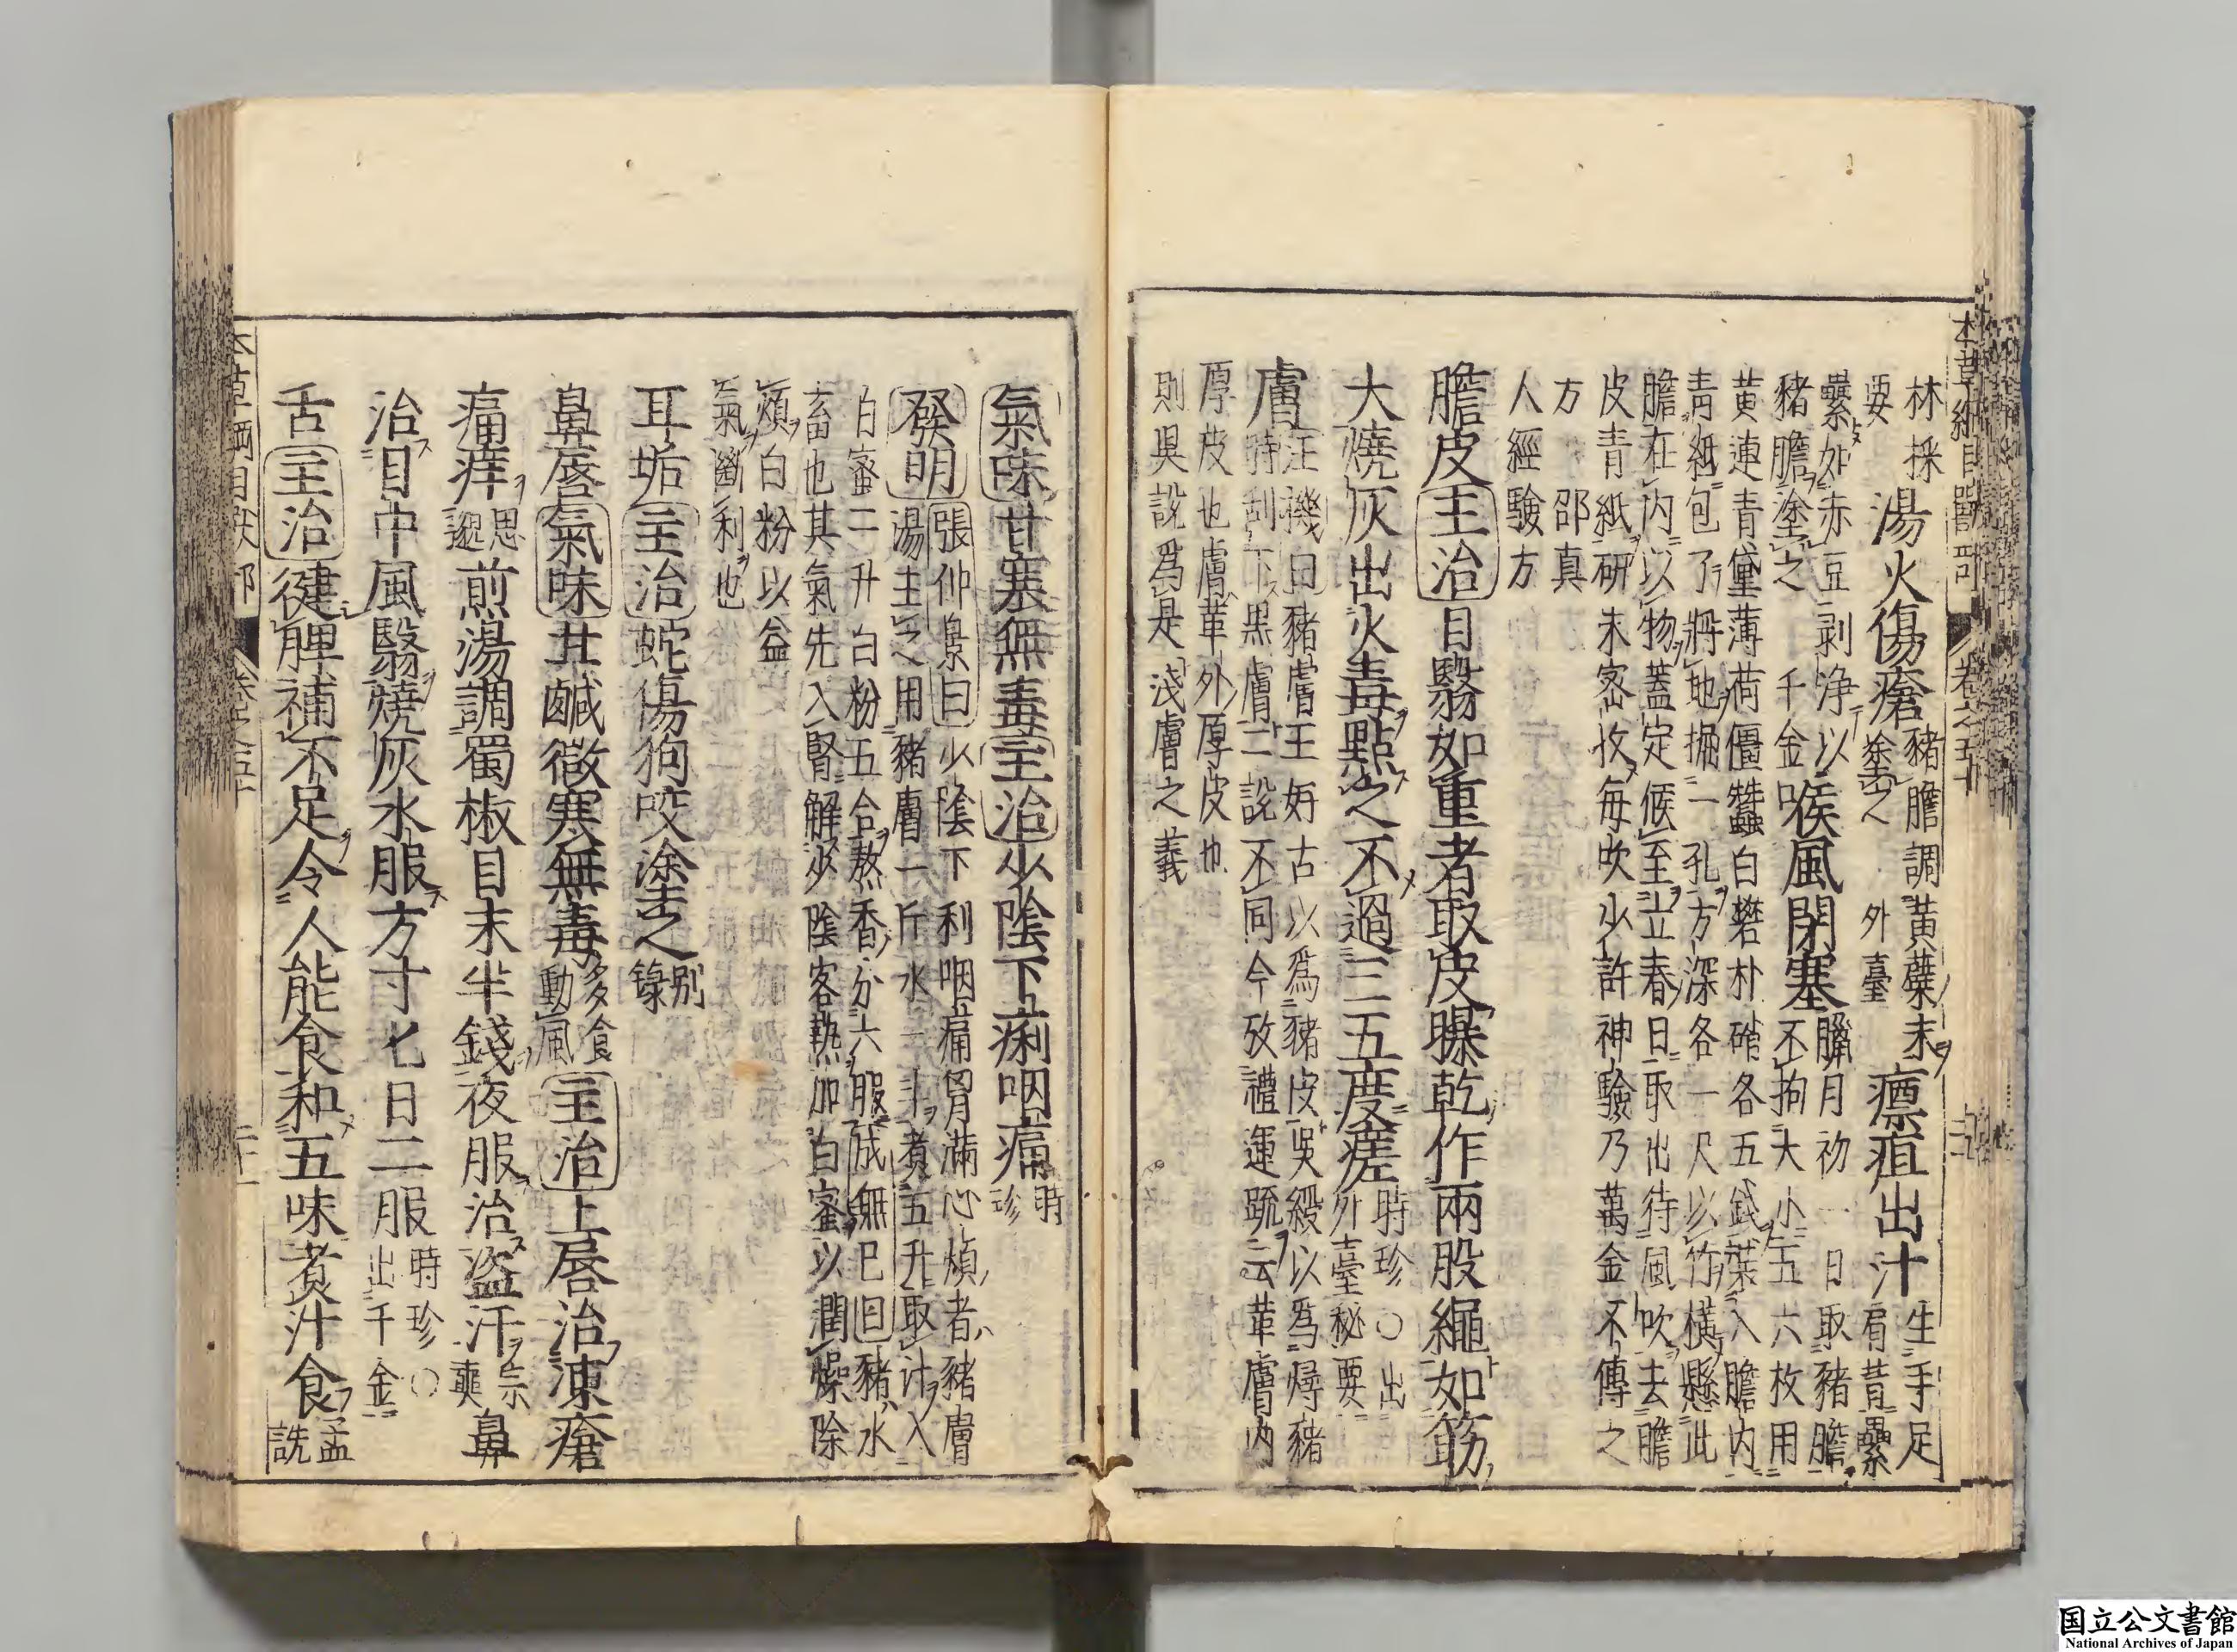 本草綱目獸部 卷之五十
林採 湯火傷瘡 豬膽調黃蘗末塗之 外臺 瘭疽出汁 生手足肩背纍
要
纍如赤豆剥淨以豬膽塗之 千金 喉風閉塞 臘月初一日取豬膽不拘大小五六枚用
黃連青黛薄荷僵蠶白礬朴硝各五錢裝入膽内
青紙包了將地掘一孔方深各一尺以竹橫懸此
膽在内以物蓋定候至立春日取出待風吹去膽
皮青紙研末密收每吹少許神驗乃萬金不傳之
方 邵真
人經驗方
膽皮主治目翳如重者取皮曝乾作兩股繩如筯
大燒灰出火毒點之不過三五度瘥 時珍○出外臺秘要
膚 汪機曰豬膚王好古以為豬皮吳綬以為燖豬
時刮下黑膚二說不同今攷禮運疏云革膚内
厚皮也膚革外厚皮也
則吳說為是淺膚之義
氣味甘寒無毒主治少陰下痢咽痛 時珍
發明 張仲景曰少陰下利咽痛胷滿心煩者豬膚
湯主之用豬膚一斤水一斗煮五升取汁入
白蜜二升白粉五合熬香分六服成無已曰豬水
畜也其氣先入腎解少陰客熱加白蜜以潤燥除
煩白粉以益
氣斷利也
耳垢主治蛇傷狗咬塗之 别錄
鼻唇氣味甘鹹微寒無毒 多食動風 主治上唇治凍瘡
痛痒 思邈 煎湯調蜀椒目末半錢夜服治盗汗 宗奭 鼻
治目中風翳燒灰水服方寸匕日二服 時珍○出千金
舌主治健脾補不足令人能食和五味煮汁食 孟詵
本草綱目獸部 卷之五十
国立公文書館
National Archives of Japan